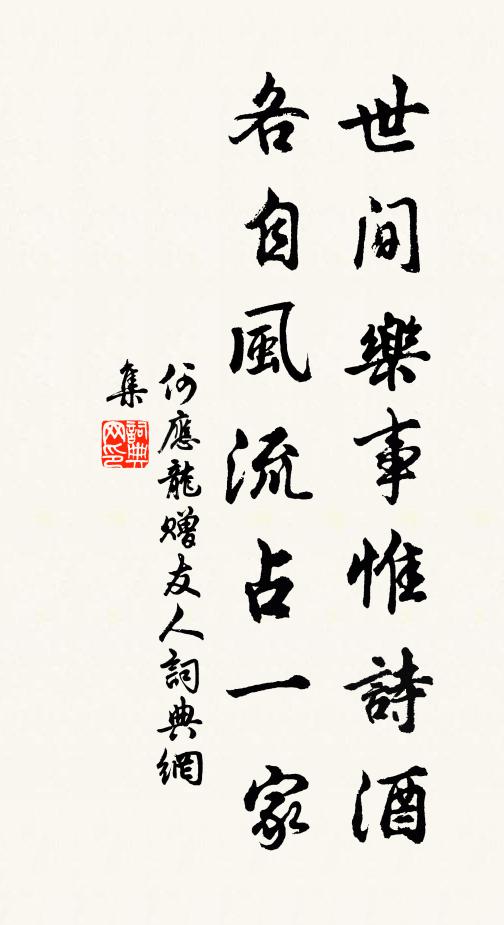 世間樂事惟詩酒
各自風流占一家
何應龍贈友人詞典網
集
詞典
网印